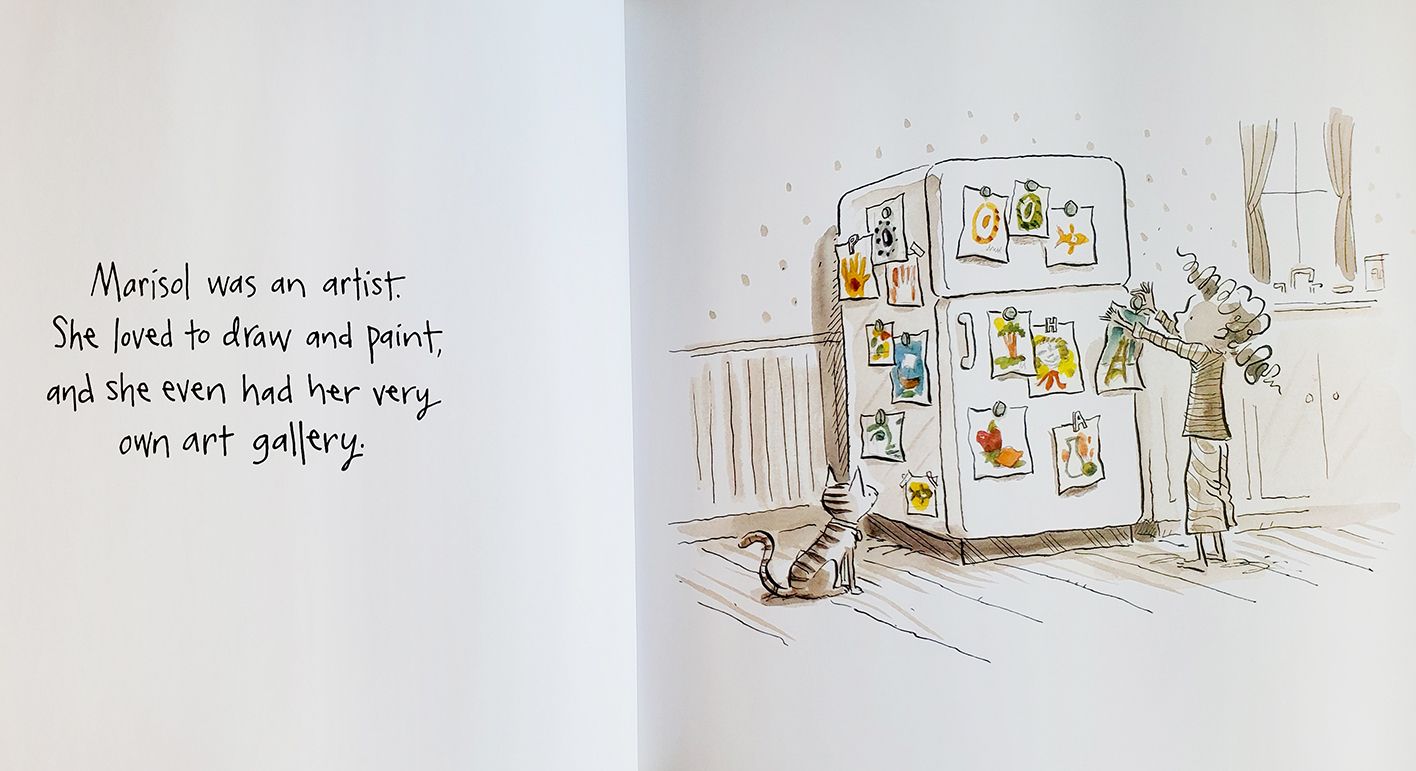 Marisol was an artist.
She loved to draw and paint,
and she even had her very
own art gallery.
P
H
A